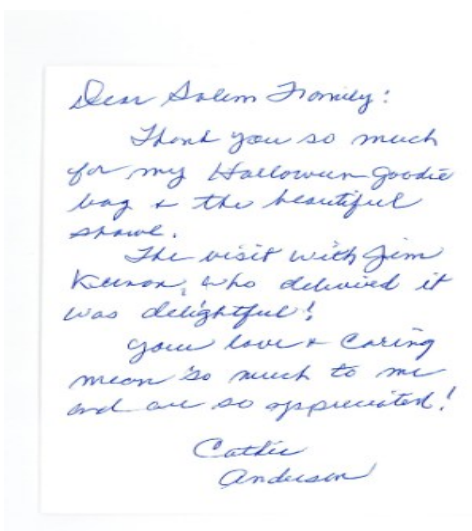 Dear Salem Family:
Thank you so much
for my Halloween goodie
bag & the beautiful
shawl.
The visit with Jim
who delivered it
was delightful!
Your love & caring
mean so much to me
and are so appreciated!
Cathie
Anderson